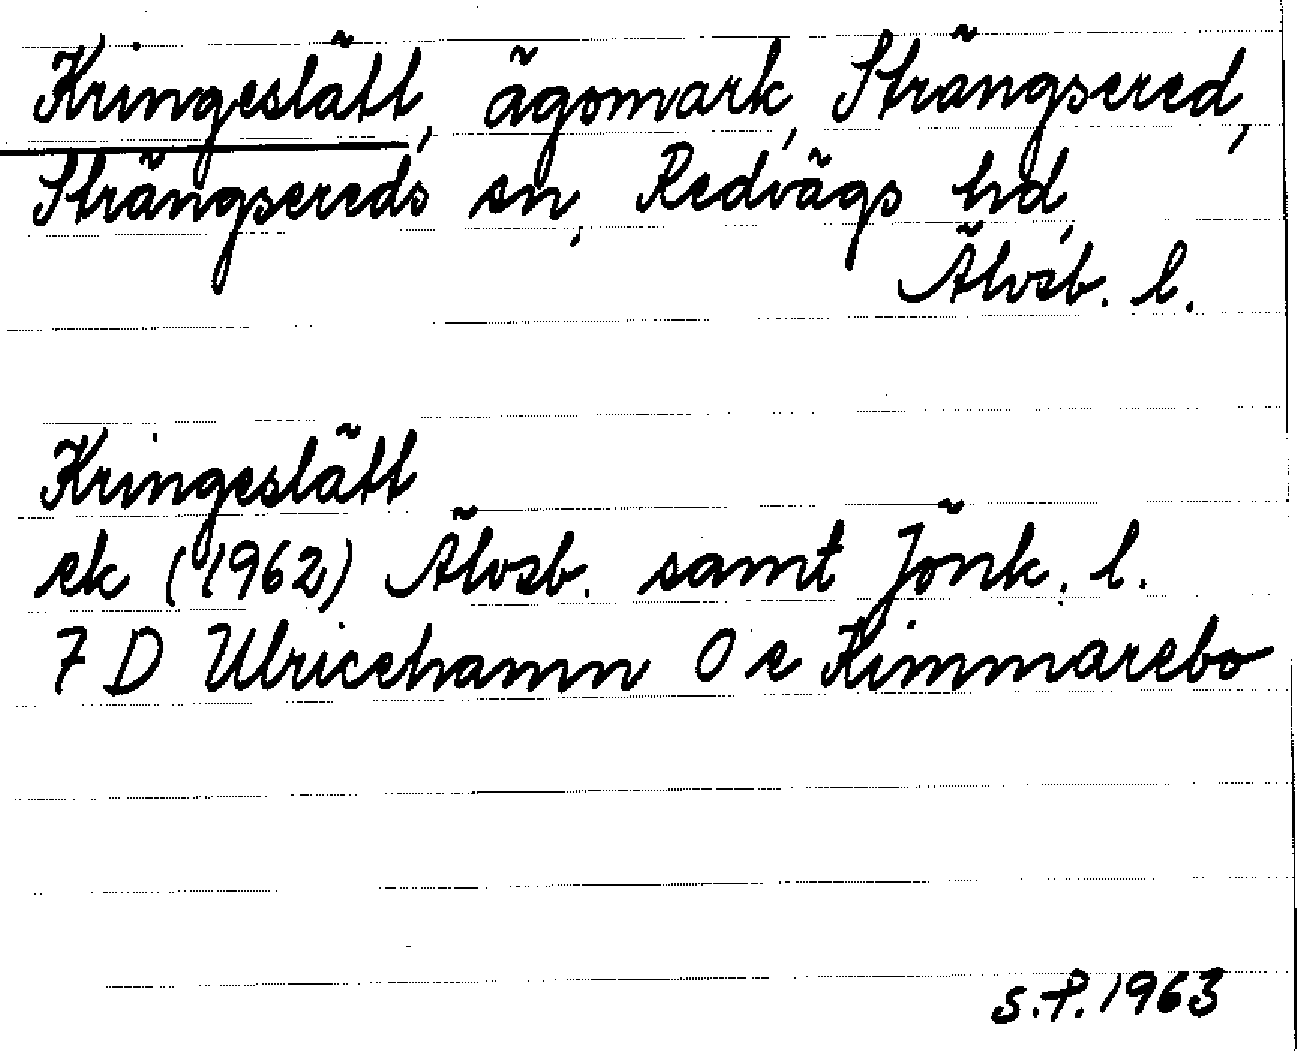 Kringeslätt, ägomark, Strängsered,
Strängsereds sn, Redvägs hd,
Älvsb. l.
Kringeslätt
ek (1962) Älvsb. samt Jönk. l.
7 D Ulricehamn 0 e Kimmarebo
S.F. 1963